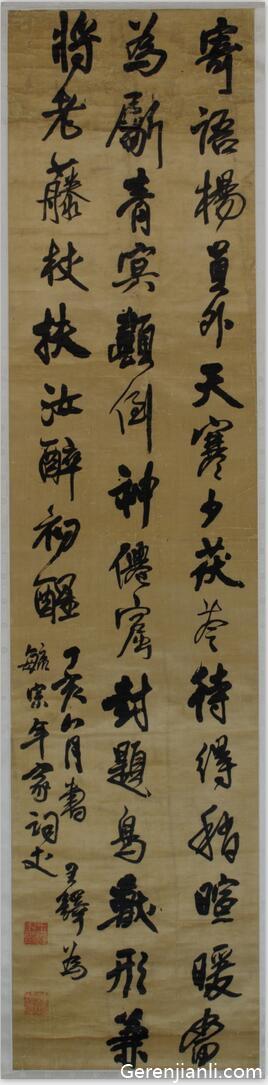 寄語楊員外天寒少茯苓待得稍暄暖當
為斸青冥顛倒神僊窟封題鳥獸形兼
將老藤杖扶汝醉初醒
丁亥八月書 王鐸為
毓宗年家詞丈
Gerenjianli.com